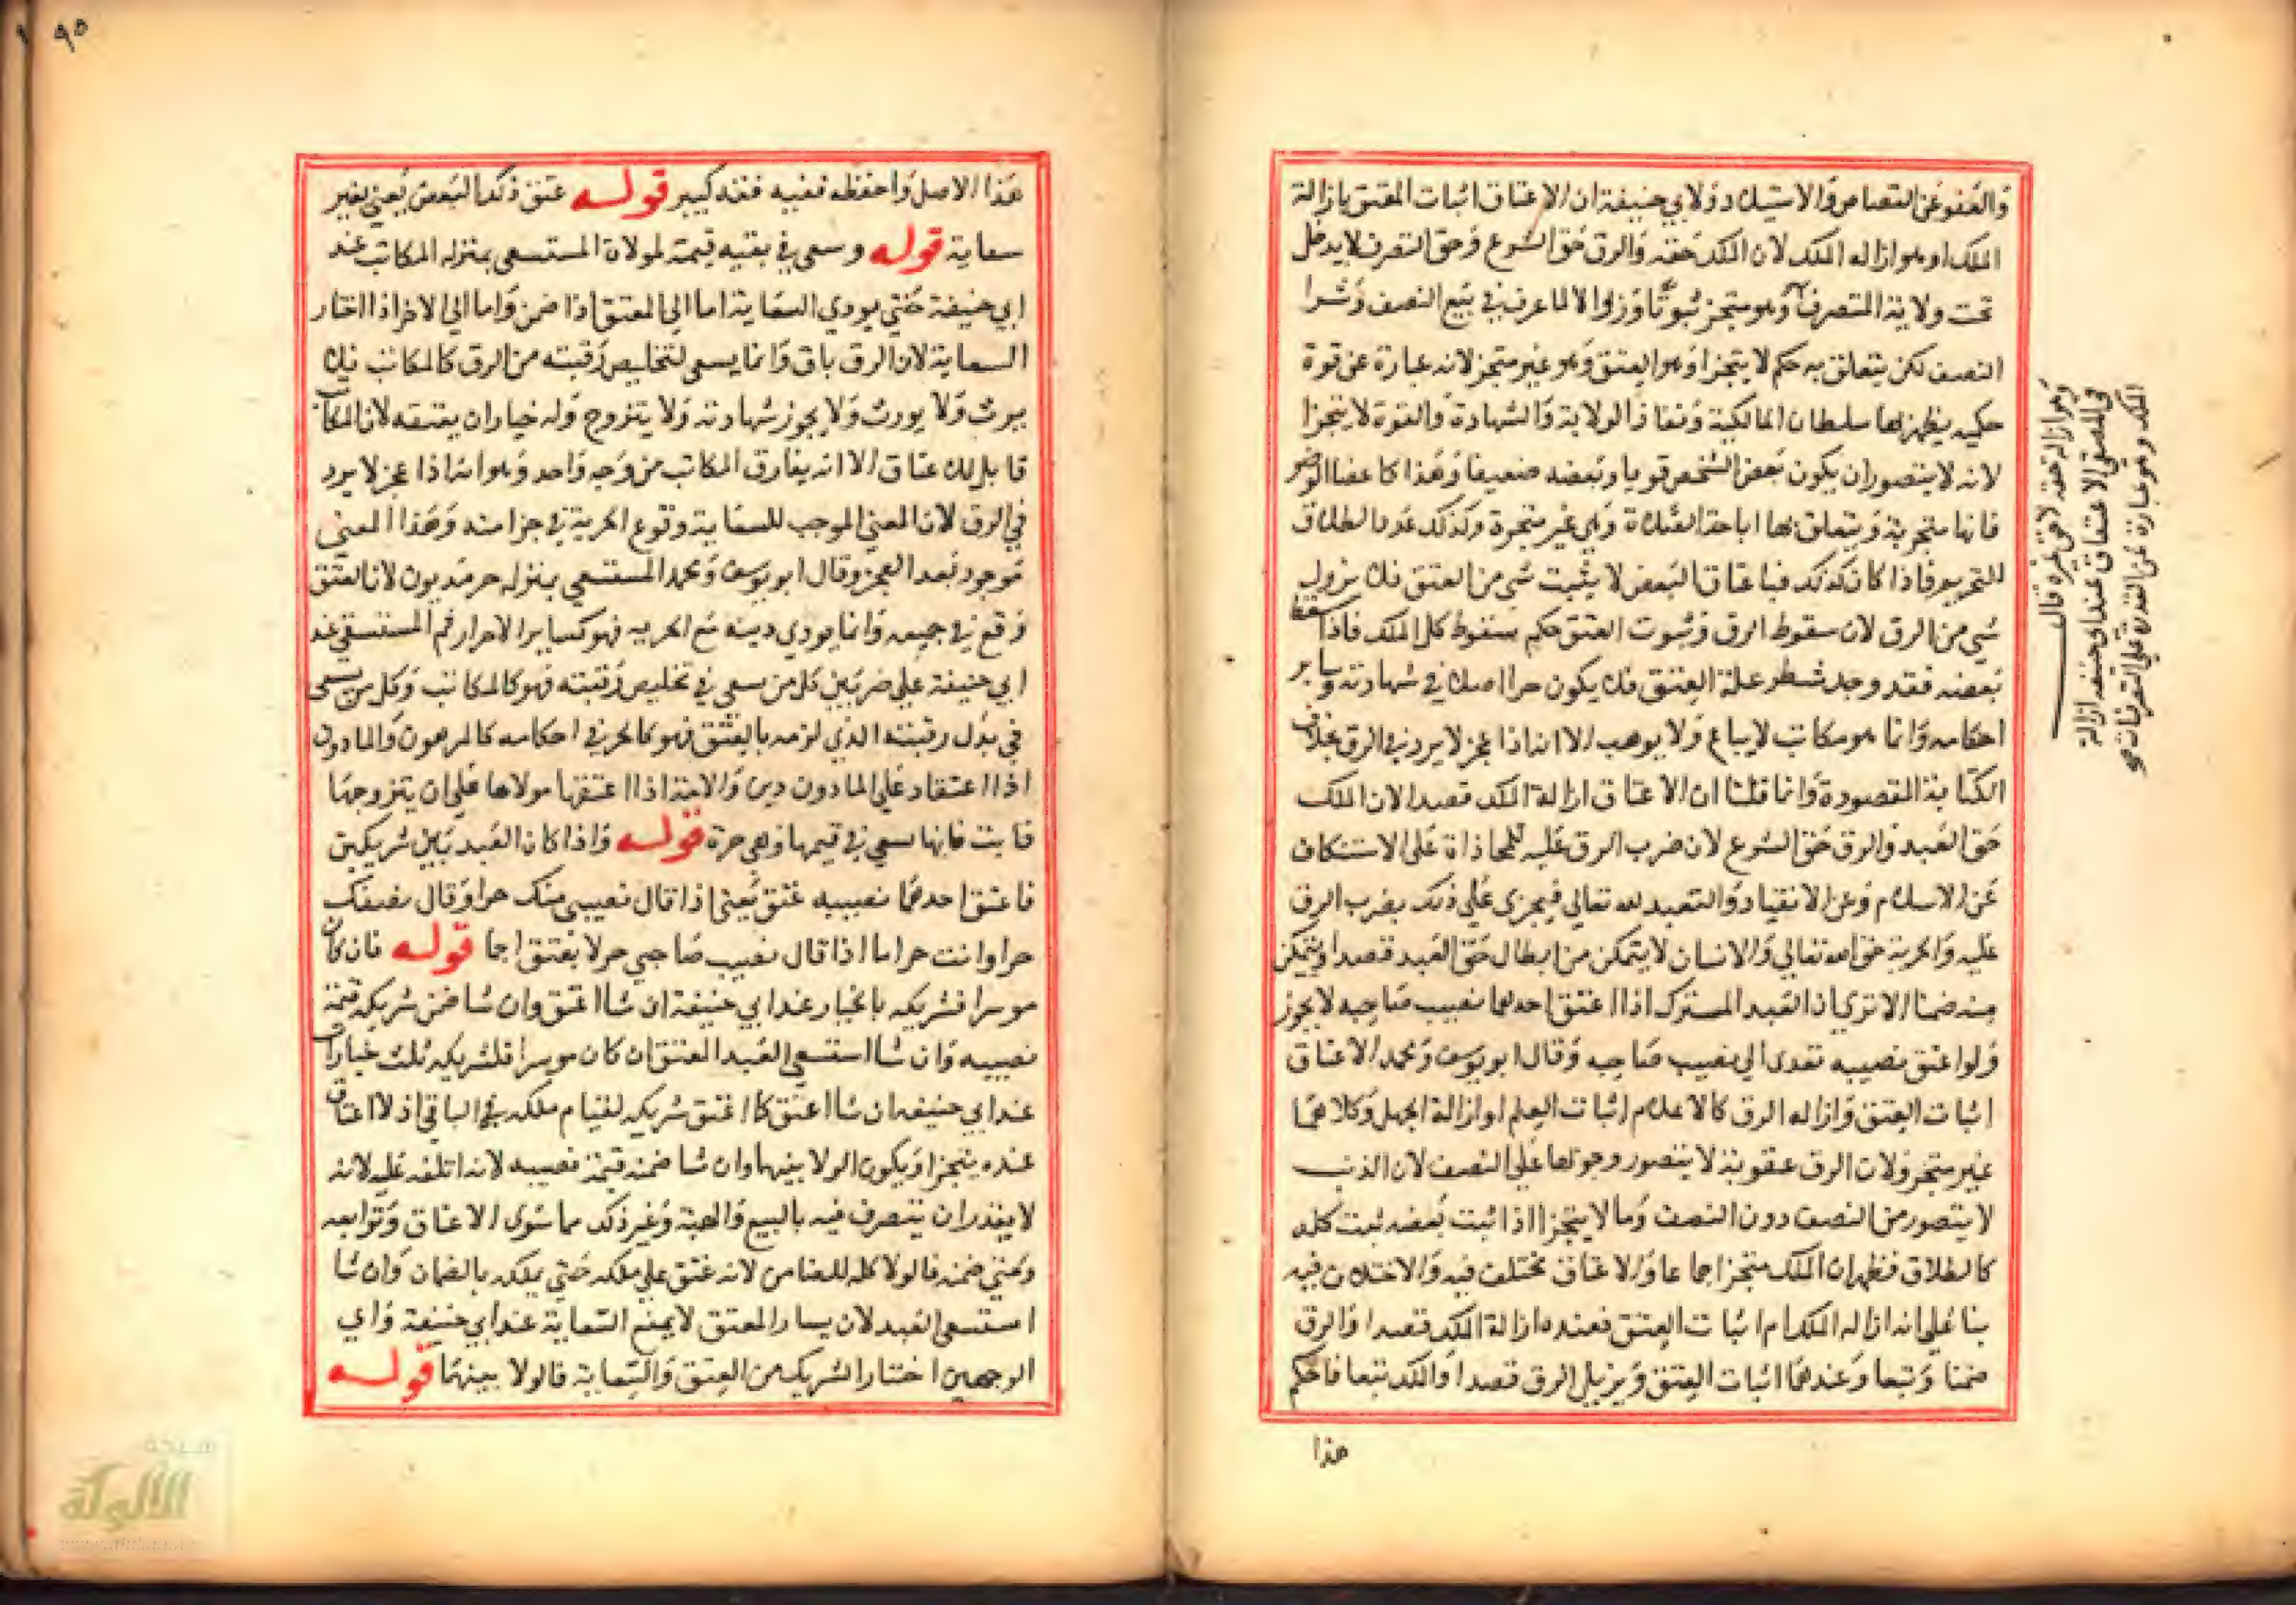 والعفو عن القصاص والاستيلاد ولابي حنيفة ان الاعتاق اثبات العتق بازالة
الملك او هو ازاله الملك لان الملك حقه والرق حق الشرع وحق التصرف لا يدخل
تحت ولاية المتصرف وهو متجز ثبوتا وزوالا لما عرف في بيع النصف وشرا
النصف لكن يتعلق به حكم لا يتجزا وهو العتق وهو غير متجز لانه عبارة عن قوة
حكميه يظهر بها سلطان المالكية ونفاذ الولاية والشهادة والقوة لا يتجزا
لانه لا يتصور ان يكون بعض الشخص قويا وبعضه ضعيفا وهذا كاعضا الوضو
فانها متجزية ويتعلق بها اباحة الصلاة وهي غير متجزة وكذلك عدد الطلاق
للتحريم فاذا كان كذلك فباعتاق البعض لا يثبت شي من العتق فلا يزول
شي من الرق لان سقوط الرق وثبوت العتق حكم بسقوط كل الملك فاذا سقط
بعضه فقد وجد شطر علة العتق فلا يكون حرا اصلا في شهادته وساير
احكامه وانما هو مكاتب لا يباع ولا يوهب الا انه اذا عجز لا يرد في الرق بخلاف
الكتابة المقصودة وانما قلنا ان الاعتاق ازالة الملك قصدا لان الملك
حق العبد والرق حق الشرع لان ضرب الرق عليه للمجازاة على الاستنكاف
عن الاسلام وعن الانقياد والتعبد لله تعالي فيجزى على ذلك بضرب الرق
عليه والحرية حق الله تعالي والانسان لا يتمكن من ابطال حق العبد قصدا ويتمكن
منه ضمنا الا ترى ان العبد المشترك اذا اعتق احدهما نصيب صاحبه لا يجوز
ولو اعتق نصيبه تعدى الي نصيب صاحبه وقال ابو يوسف ومحمد الاعتاق
اثبات العتق وازاله الرق كالاعلام اثبات العلم او ازالة الجهل وكلاهما
غير متجز ولان الرق عقوبة لا يتصور وجوبها على النصف لان الذنب
لا يتصور من النصف دون النصف وما لا يتجزا اذا اثبت بعضه ثبت كله
كالطلاق فظهر ان الملك متجز اجماعا والاعتاق مختلف فيه والاختلاف فيه
بنا على انه ازاله الملك ام اثبات العتق فعنده ازالة الملك قصدا والرق
ضمنا وتبعا وعندهما اثبات العتق ويزيل الرق قصدا والملك تبعا فاحكم
هذا
وهو ازالة حقه لا حق غيره قال
في المصفى الاعتاق عند ابو حنيفه ازالة
الملك وهو عبارة عن القدرة على التصرفات صح
٩٥
هذا الاصل واحفظه ففيه فقه كبير قوله عتق ذلك البعض يعني بغير
سعاية قوله وسعى في بقيه قيمته لمولاه المستسعى بمنزله المكاتب عند
ابي حنيفة حتي يودي السعاية اما الي المعتق اذا ضمن واما الي الاخر اذا اختار
السعاية لان الرق باق وانما يسعى لتخليص رقبته من الرق كالمكاتب فلا
يرث ولا يورث ولا يجوز شهادته ولا يتزوج وله خيار ان يعتقه لان المكاتب
قابل للاعتاق الا انه يفارق المكاتب من وجه واحد وهو انه اذا عجز لا يرد
في الرق لان المعني الموجب للسعاية وقوع الحرية في جزا منه وهذا المعنى
موجود بعد العجز وقال ابو يوسف ومحمد المستسعي بمنزله حر مديون لان العتق
وقع في جميعه وانما يودي دينه مع الحريه فهو كساير الاحرار ثم المستسعى عند
ابي حنيفة على ضربين كل من سعى في تخليص رقبته فهو كالمكاتب وكل من يسعى
في بدل رقبته الذي لزمه بالعتق فهو كالحر في احكامه كالمرهون والمادون
اذا اعتقا وعلى المادون دين والامة اذا اعتقها مولاها على ان يتزوجها
فابت فانها تسعى في قيمتها وهي حرة قوله واذا كان العبد بين شريكين
فاعتق احدهما نصيبه عتق يعني اذا قال نصيبي منك حر او قال نصفك
حر او انت حر اما اذا قال نصيب صاحبي حر لا يعتق اجما قوله فان كان
موسرا فشريكه بالخيار عند ابي حنيفة ان شا اعتق وان شا ضمن شريكه قيمة
نصيبه وان شا استسعي العبد المعتق ان كان موسرا فلشريكه ثلث خيارات
عند ابي حنيفه ان شا اعتق كما اعتق شريكه لقيام ملكه في الباقي اذ الاعتاق
عنده يتجزا ويكون الولا بينهما وان شا ضمنه قيمة نصيبه لانه اتلفه عليه لانه
لا يقدر ان يتصرف فيه بالبيع والهبة وغير ذلك مما سوى الاعتاق وتوابعه
ومتي ضمنه فالولا كله للضامن لانه عتق على ملكه حتي يملكه بالضمان وان شا
استسعى العبد لان يسار المعتق لا يمنع السعاية عند ابي حنيفة واي
الوجهين اختار الشريك من العتق والسعاية فالولا بينهما قوله
الألوكة